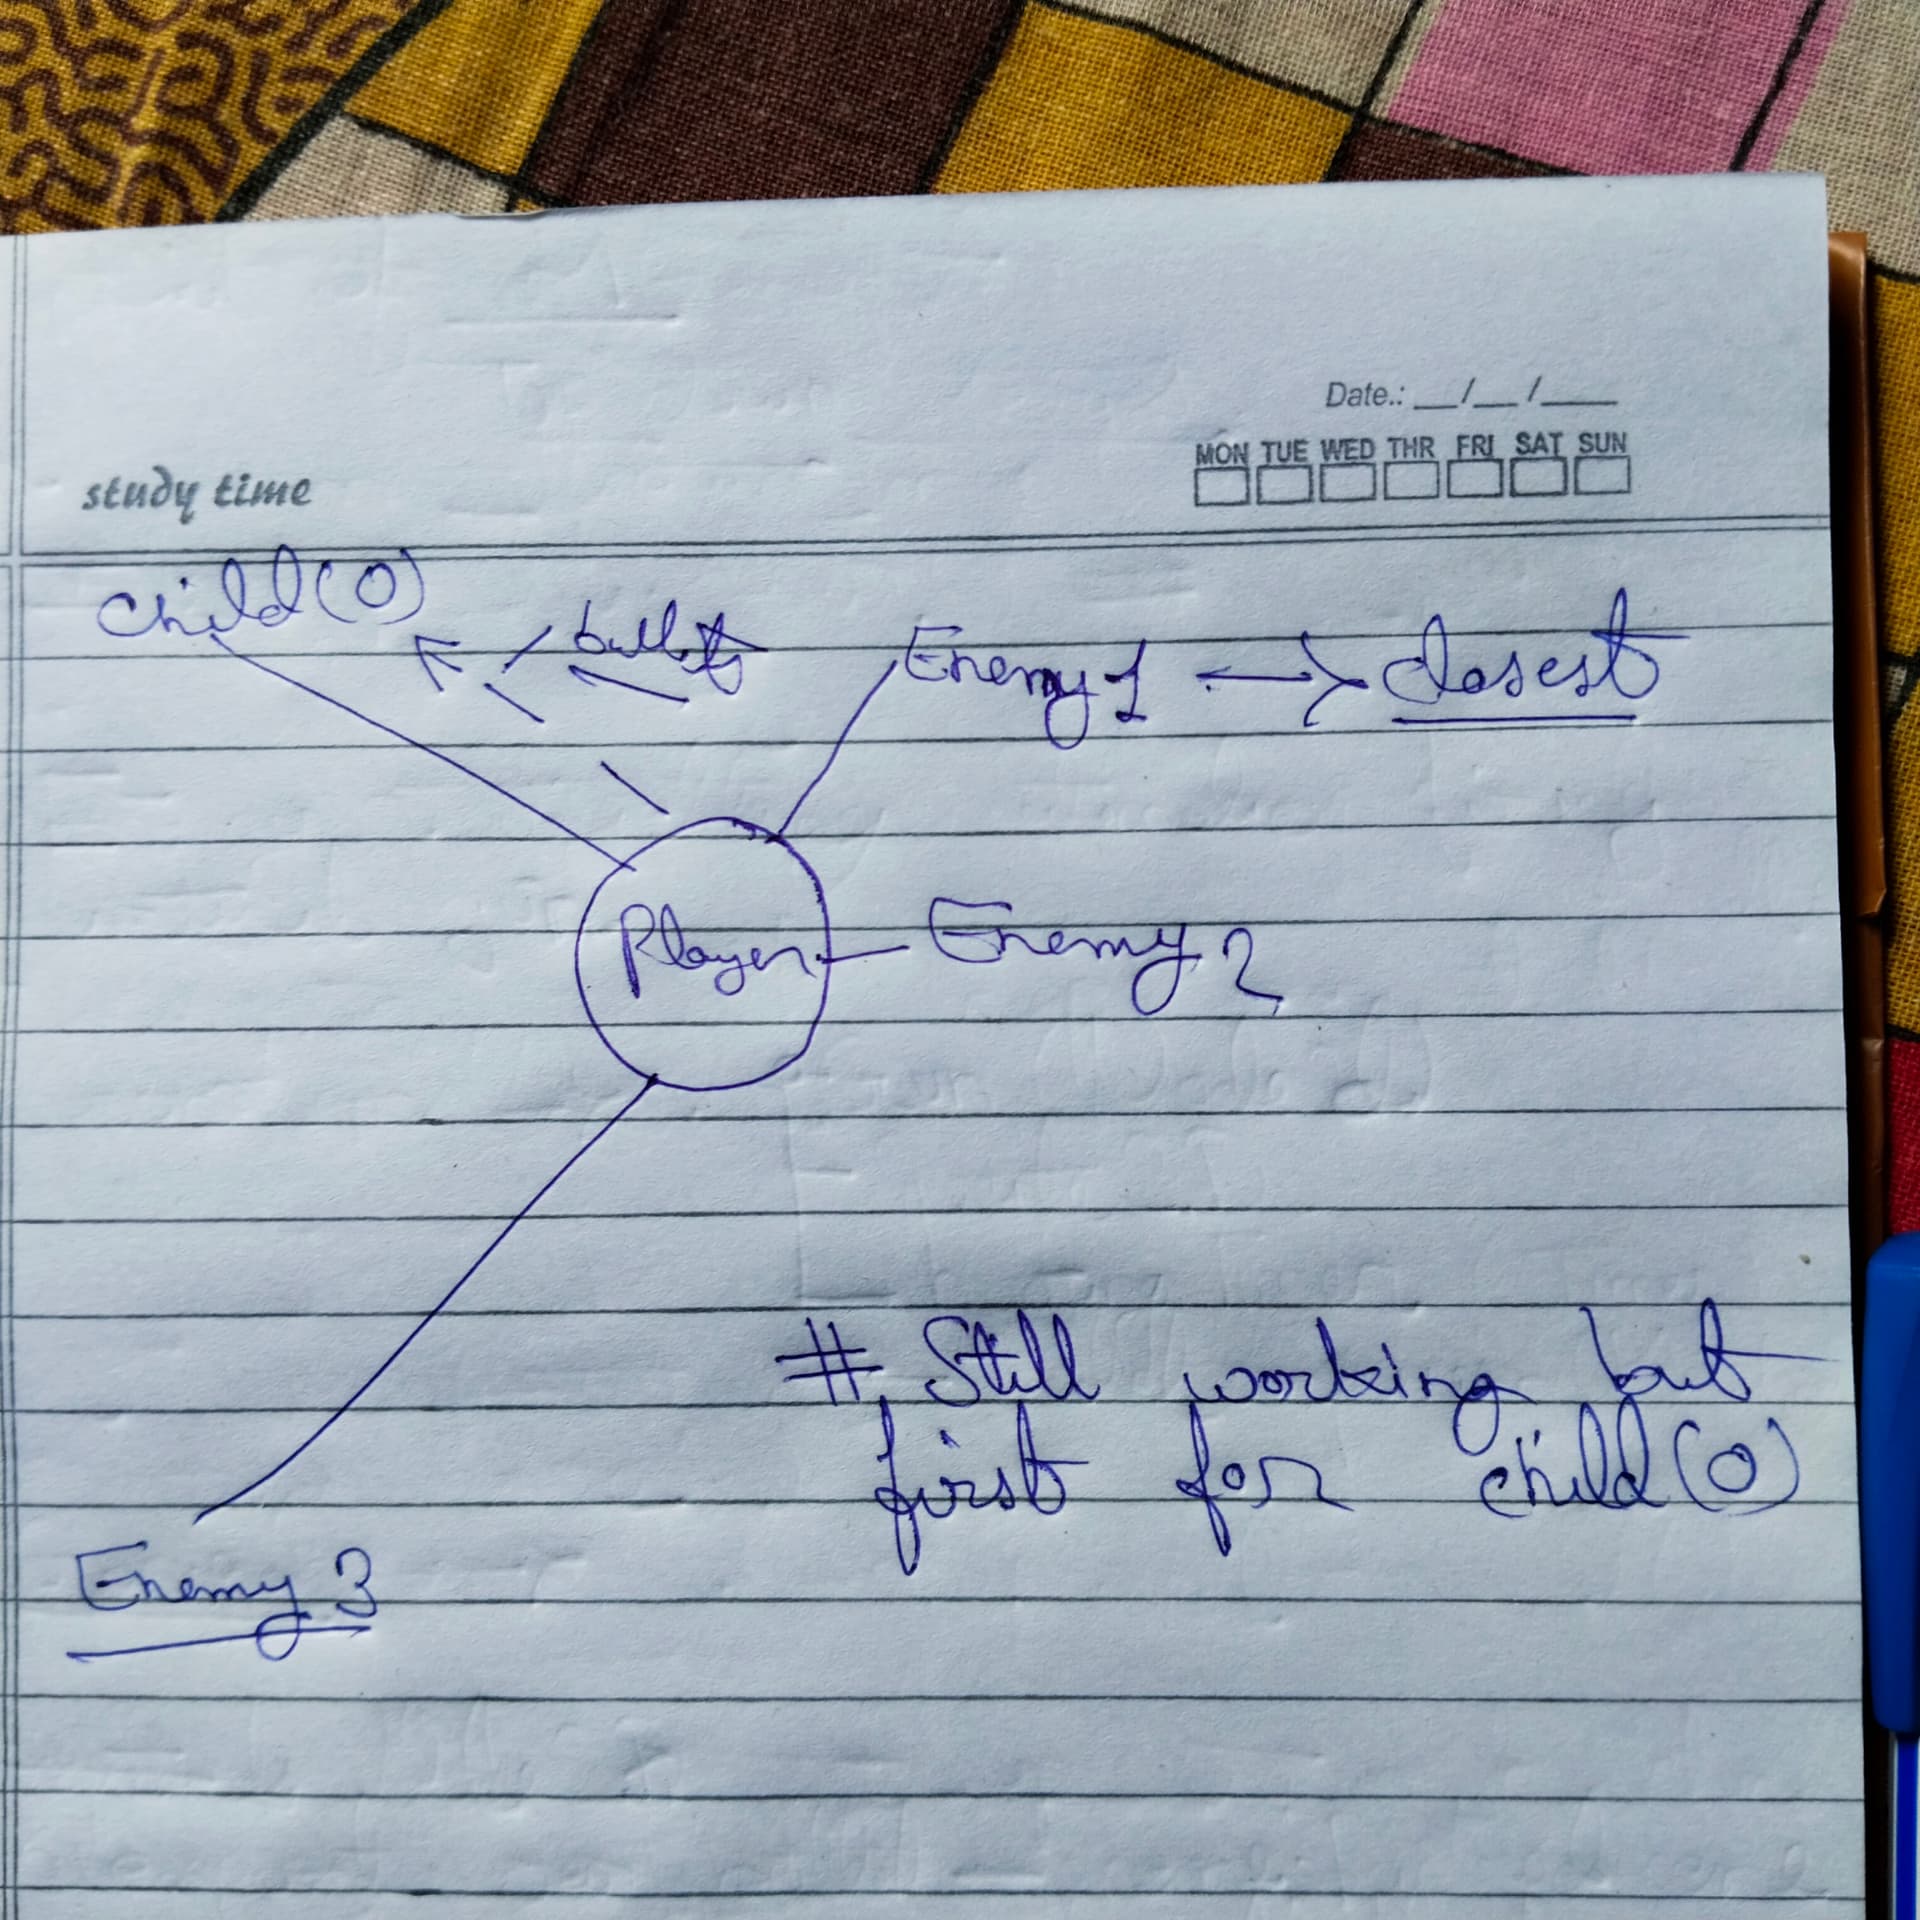 Date.: __/__/____
MON TUE WED THR FRI SAT SUN
study time
child(0)
bullets
Enemy 1 → closest
Player
Enemy 2
# Still working but
first for child(0)
Enemy 3